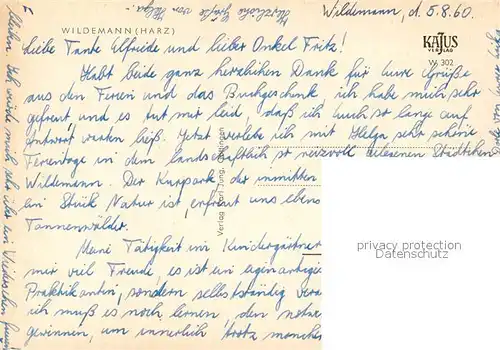 Wildemann, d. 5.8.60.
WILDEMANN (HARZ)
KATUS
VERLAG
W 302
Herzliche Grüße von Helga.
Liebe Tante Elfriede und lieber Onkel Fritz!
Habt beide ganz herzlichen Dank für Eure Grüße
aus den Ferien und das Buchgeschenk, ich habe mich sehr
gefreut und es tut mir leid, daß ich Euch so lange auf
Antwort warten ließ. Jetzt verlebe ich mit Helga sehr schöne
Ferientage in dem landschaftlich so reizvoll gelegenen Städtchen
Wildemann. Der Kurpark, der inmitten
ein Stück Natur ist, erfreut uns eben
Tannenwälder.
Meine Tätigkeit im Kindergärtner
mir viel Freude, es ist ein
Praktikantin, sondern selbständig
ich muß es noch lernen, den
gewinnen, um innerlich trotz manchen
Verlag Karl Jung,
privacy protection
Datenschutz